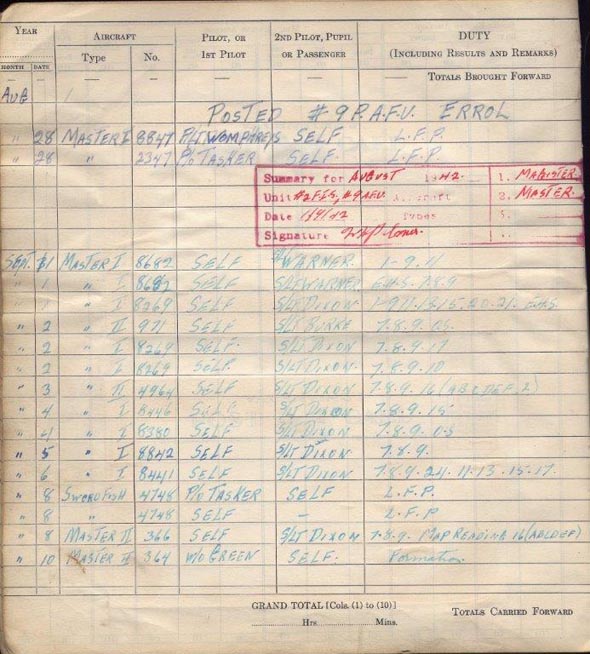 YEAR AIRCRAFT PILOT, OR 2ND PILOT, PUPIL DUTY
MONTH DATE Type No. 1ST PILOT OR PASSENGER (INCLUDING RESULTS AND REMARKS)
— — — — — — TOTALS BROUGHT FORWARD
AUG
POSTED #9 P.A.F.U. ERROL
" 28 MASTER I 8847 SELF L.F.P.
" 28 " 2347 P/O TASKER SELF. L.F.P.
Summary for AUGUST 1942. 1. MAGISTER
Unit #2 F.I.S, #9 AFU Aircraft 2. MASTER.
Date 1/9/42 Types 3.
Signature
SEPT. 1 MASTER I 8682 SELF WARNER. 1-9.11
" 1 " I SELF S/LT WARNER 7.8.9
" 1 " I 8269 SELF S/LT DIXON
" 2 " II 971 SELF S/LT BURKE 7.8.9.
" 2 " I 8269 SELF. S/LT DIXON 7.8.9.17
" 2 " I 8269 SELF. S/LT DIXON 7.8.9.10
" 3 " II 4964 SELF S/LT DIXON 7.8.9.16 (ABCDEF.2)
" 4 " I 8446 SELF S/LT DIXON 7.8.9.15
" 4 " I 8380 SELF S/LT DIXON 7.8.9.
" 5 " I 8842 SELF S/LT DIXON. 7.8.9.
" 6 " I 8441 SELF S/LT DIXON. 7.8.9.24.11.13.15.17.
" 8 SWORDFISH 4748 P/O TASKER SELF L.F.P.
" 8 " 4748 SELF — L.F.P
" 8 MASTER II 366 SELF S/LT DIXON 7.8.9. MAP READING 16 (ABCDEF)
" 10 MASTER II 364 W/O GREEN SELF. Formation.
GRAND TOTAL [Cols. (1) to (10)]
Hrs. Mins. TOTALS CARRIED FORWARD